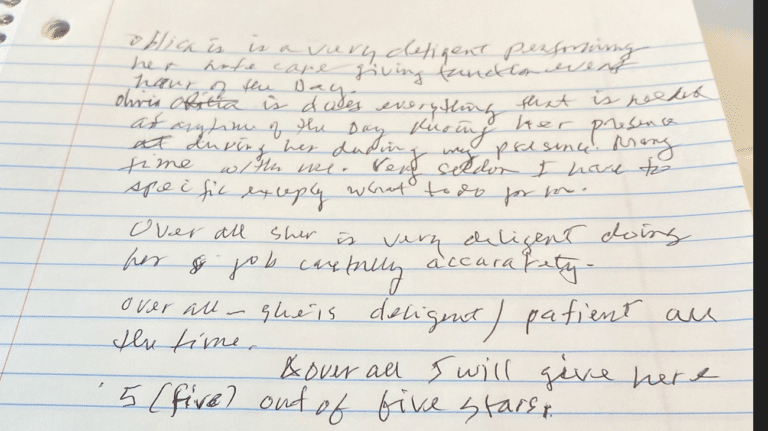 is a very deligent performing
her care giving function every
hour of the Day.
is does everything that is needed
at anytime of the Day during her presence
at during her during my presence.
time with me. Very seldom I have to
specific what to do for me.
Over all sher is very deligent doing
her job carefully accarately.
over all - she is deligent / patient all
the time.
& over all I will give here
5 (five) out of five stars.